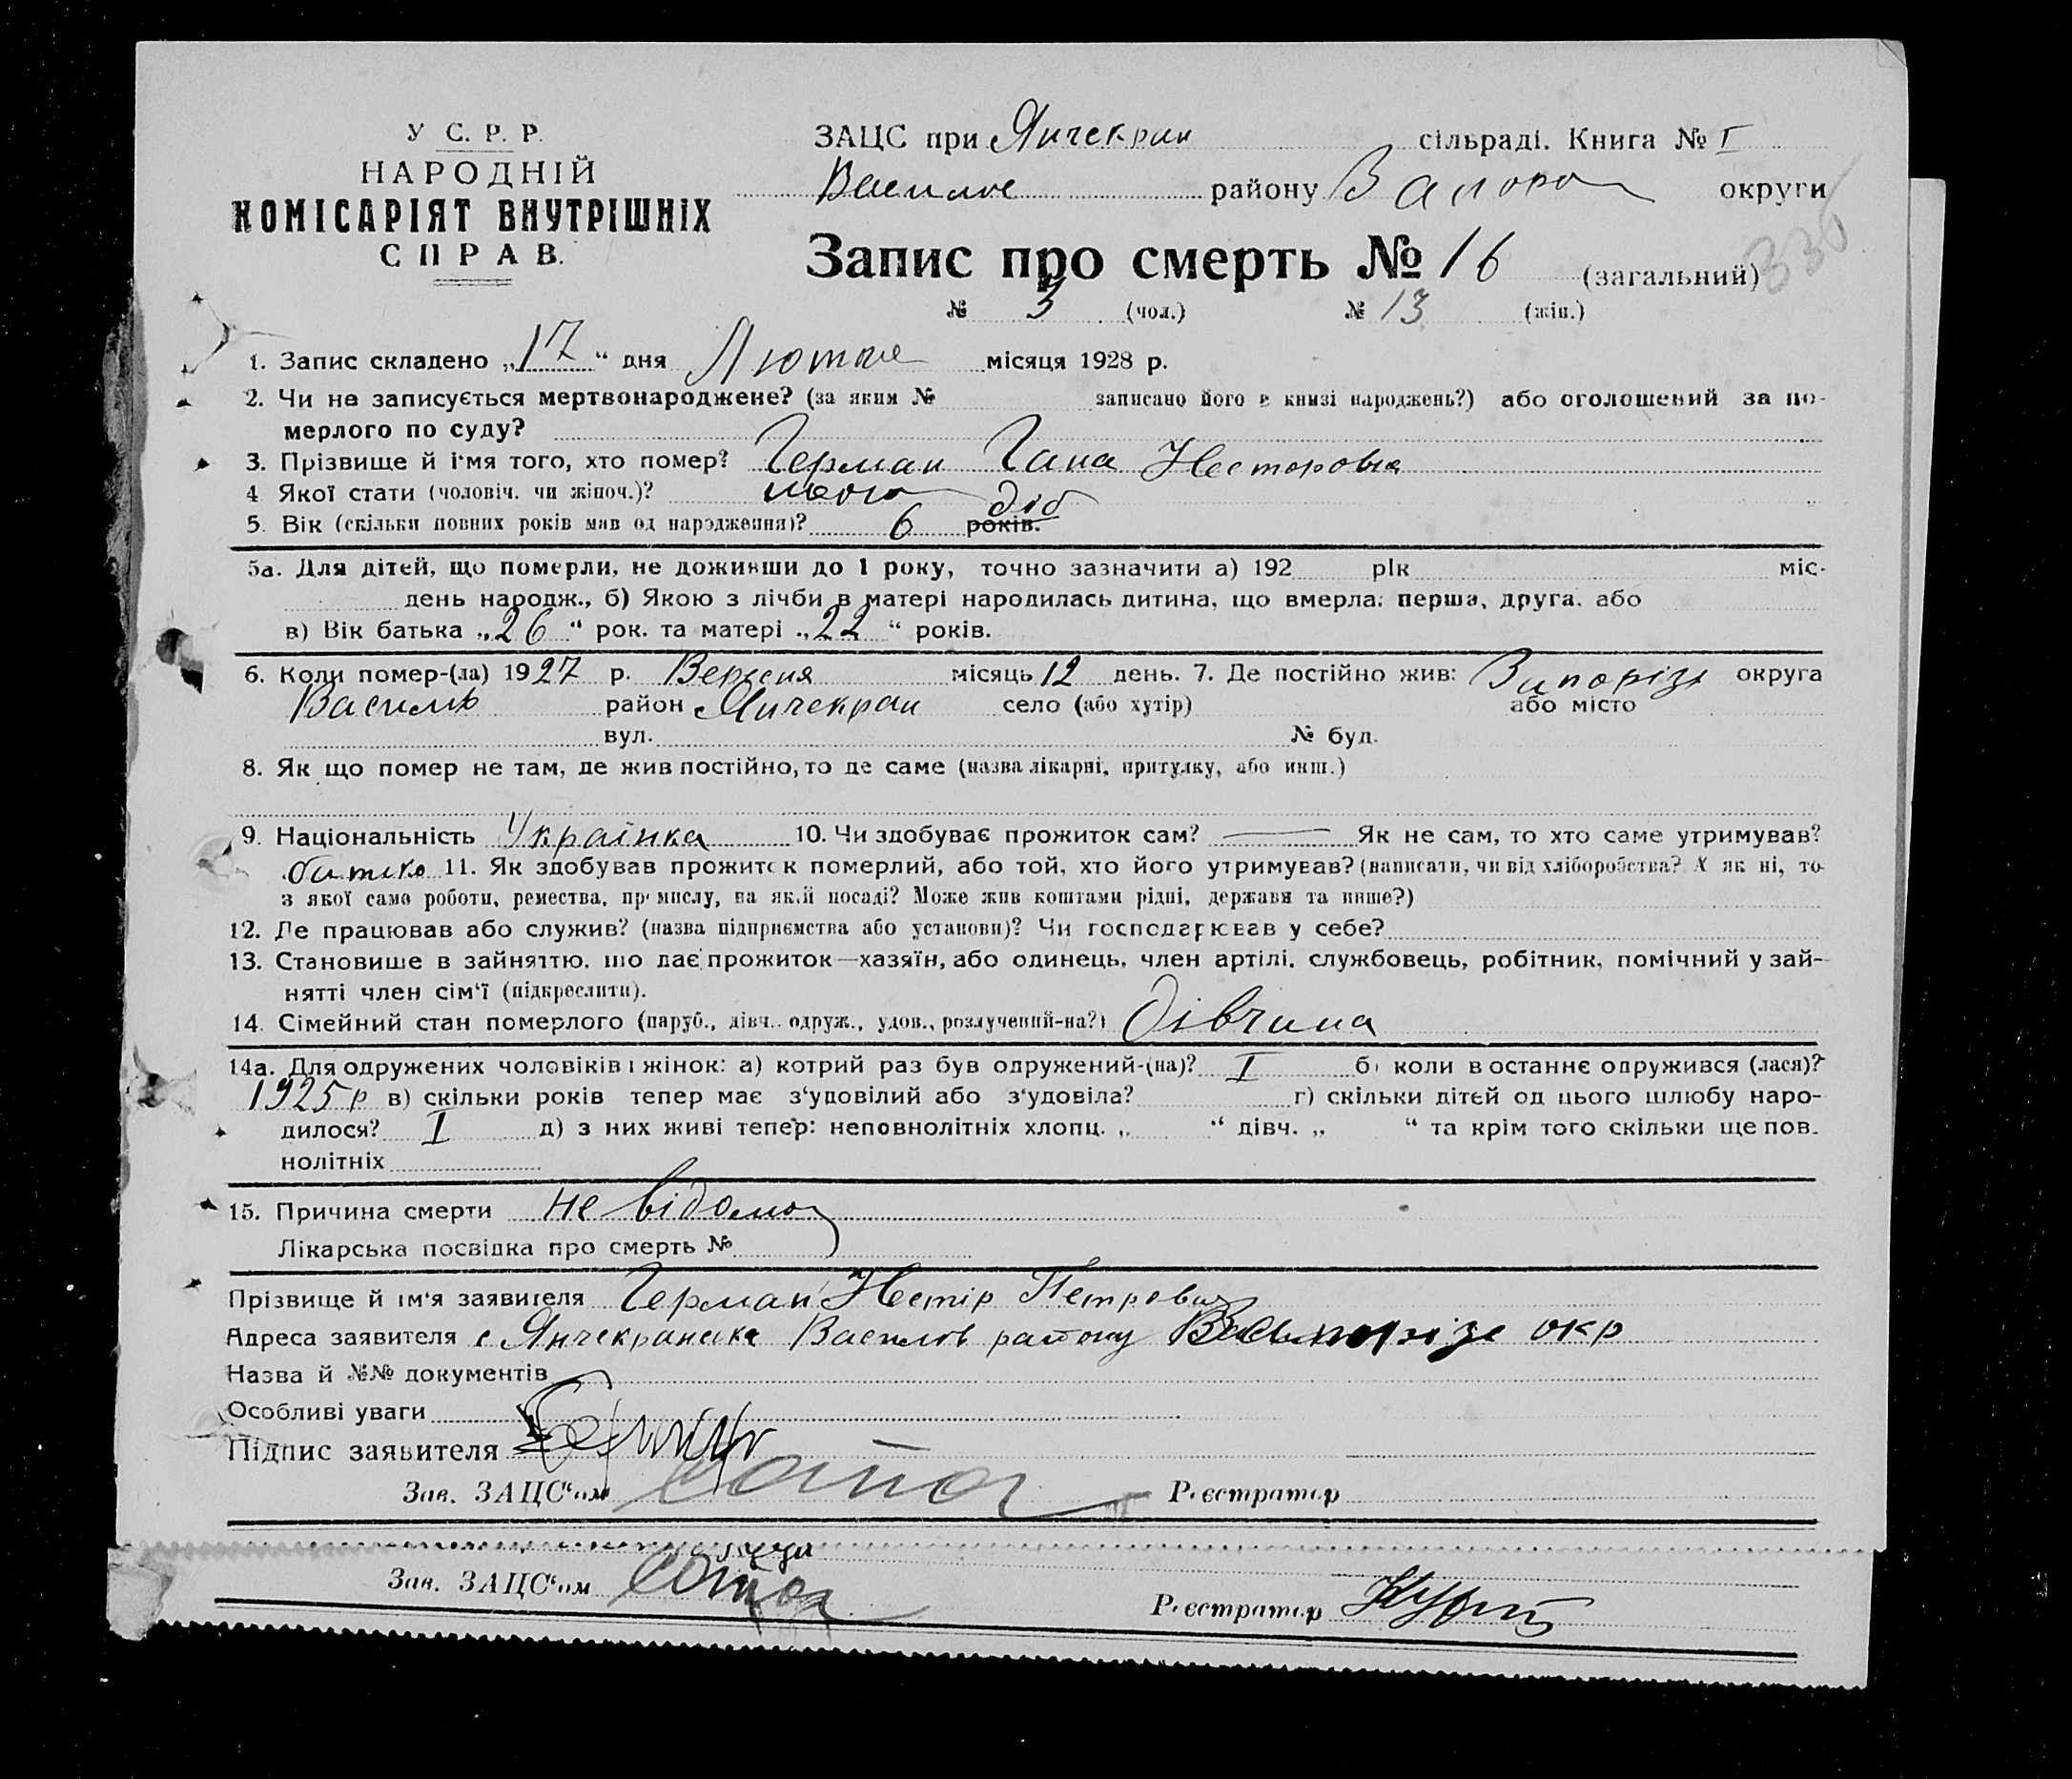 У С. Р. Р.
НАРОДНІЙ
КОМІСАРІЯТ ВНУТРІШНІХ
СПРАВ.
ЗАЦС при Янчекрак сільраді. Книга № I
Василів району Запоріз округи
336
Запис про смерть № 16 (загальний)
№ 3 (чол.) № 13 (жін.)
1. Запис складено „17“ дня Лютого місяця 1928 р.
2. Чи не записується мертвонароджене? (за яким № записано його в книзі народжень?) або оголошений за по-
мерлого по суду?
3. Прізвище й ім'я того, хто помер? Герман Гана Несторовна
4 Якої стати (чоловіч. чи жіноч.)? жіноч
5. Вік (скільки повних років мав од народження)? 6 років. діб
5а. Для дітей, що померли, не доживши до 1 року, точно зазначити а) 192 рік міс.
день народж., б) Якою з лічби в матері народилась дитина, що вмерла: перша, друга, або
в) Вік батька „26“ рок. та матері „22“ років.
6. Коли помер-(ла) 1927 р. Вересня місяць 12 день. 7. Де постійно жив: Запоріз округа
Василів район Янчекрак село (або хутір) або місто
вул. № буд.
8. Як що помер не там, де жив постійно, то де саме (назва лікарні, притулку, або инш.)
9. Національність Українка 10. Чи здобував прожиток сам? — Як не сам, то хто саме утримував?
батько 11. Як здобував прожиток померлий, або той, хто його утримував? (написати, чи від хліборобства? А як ні, то
з якої само роботи, ремества, промислу, на якій посаді? Може жив коштами рідні, держави та инше?)
12. Де працював або служив? (назва підприємства або установи)? Чи господарював у себе?
13. Становище в зайняттю, що дає прожиток—хазяїн, або одинець, член артілі, службовець, робітник, помічний у зай-
нятті член сім'ї (підкреслити).
14. Сімейний стан померлого (паруб., дівч., одруж., удов., розлучений-на?) дівчина
14а. Для одружених чоловіків і жінок: а) котрий раз був одружений-(на)? I б) коли в останнє одружився (лася)?
1925 р в) скільки років тепер має з'удовілий або з'удовіла? г) скільки дітей од цього шлюбу наро-
дилося? I д) з них живі тепер: неповнолітніх хлопц. „ “ дівч. „ “ та крім того скільки ще пов.
нолітніх
15. Причина смерти не відомо
Лікарська посвідка про смерть №
Прізвище й ім'я заявителя Герман Нестір Петрович
Адреса заявителя с Янчекракська Василів району Запорізс окр
Назва й №№ документів
Особливі уваги
Підпис заявителя
Зав. ЗАЦС'ом Реєстратор
Зав. ЗАЦС'ом Реєстратор